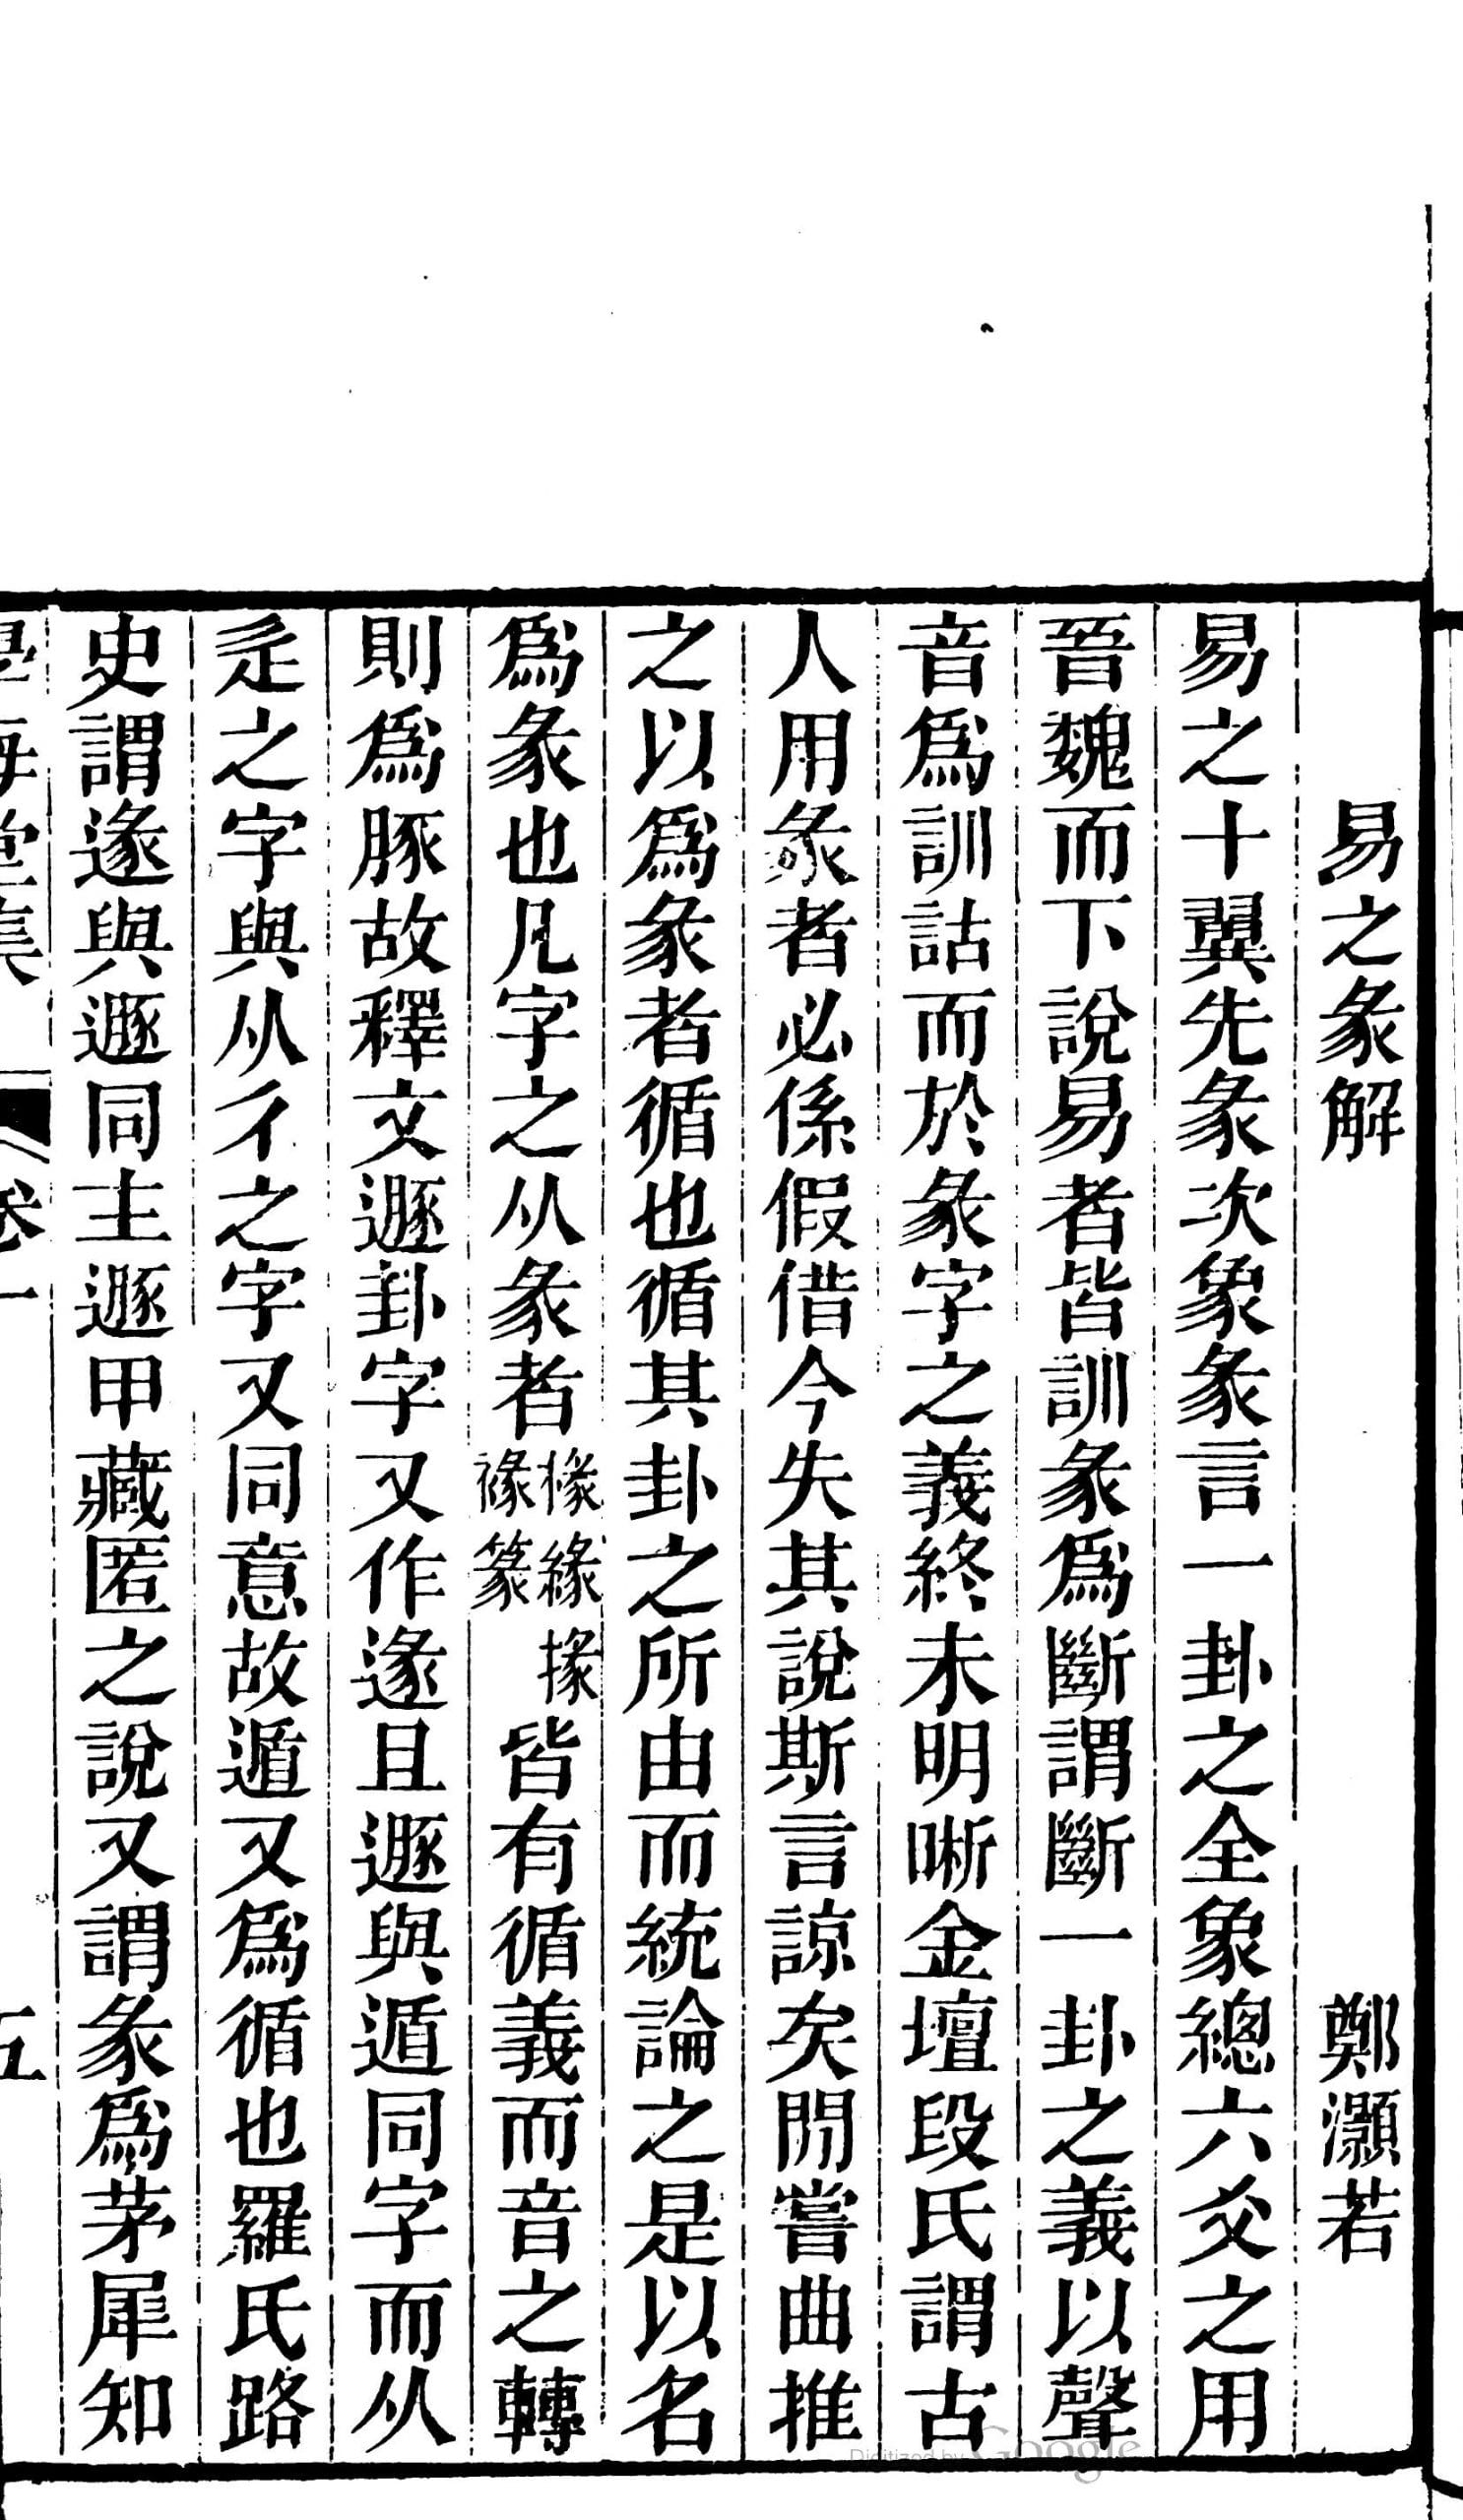 易之彖解 鄭灝若
易之十翼先彖次象彖言一卦之全象總六爻之用
晉魏而下說易者皆訓彖爲斷謂斷一卦之義以聲
音爲訓詁而於彖字之義終未明晰金壇段氏謂古
人用彖者必係假借今失其說斯言諒矣閒嘗曲推
之以爲彖者循也循其卦之所由而統論之是以名
爲彖也凡字之从彖者椽緣掾褖篆皆有循義而音之轉
則爲豚故釋文遯卦字又作遂且遯與遁同字而从
辵之字與从彳之字又同意故遁又爲循也羅氏路
史謂遂與遯同主遯甲藏匿之說又謂彖爲茅犀知
學海堂集 卷一 五
Digitized by Google